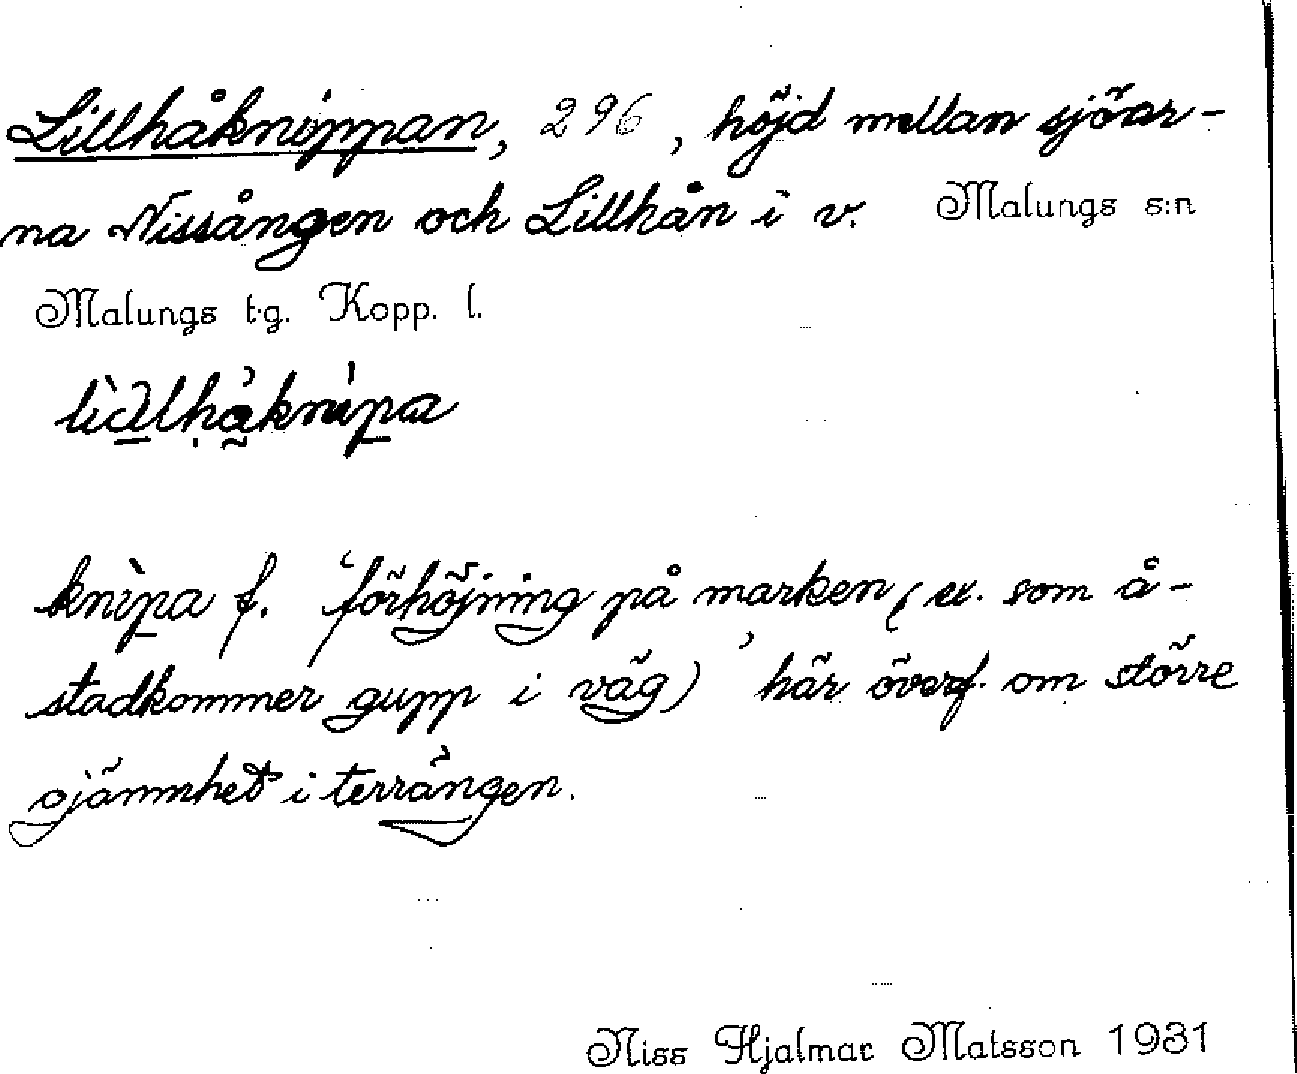 Lillhåknippan, 296, höjd mellan sjöar-
na Nissången och Lillhån i v. Malungs s:n
Malungs t.g. Kopp. l.
knìpa f. 'förhöjning på marken (ex. som å-
stadkommer gupp i väg)' här överf. om större
ojämnhet i terrängen.
Niss Hjalmar Matsson 1931